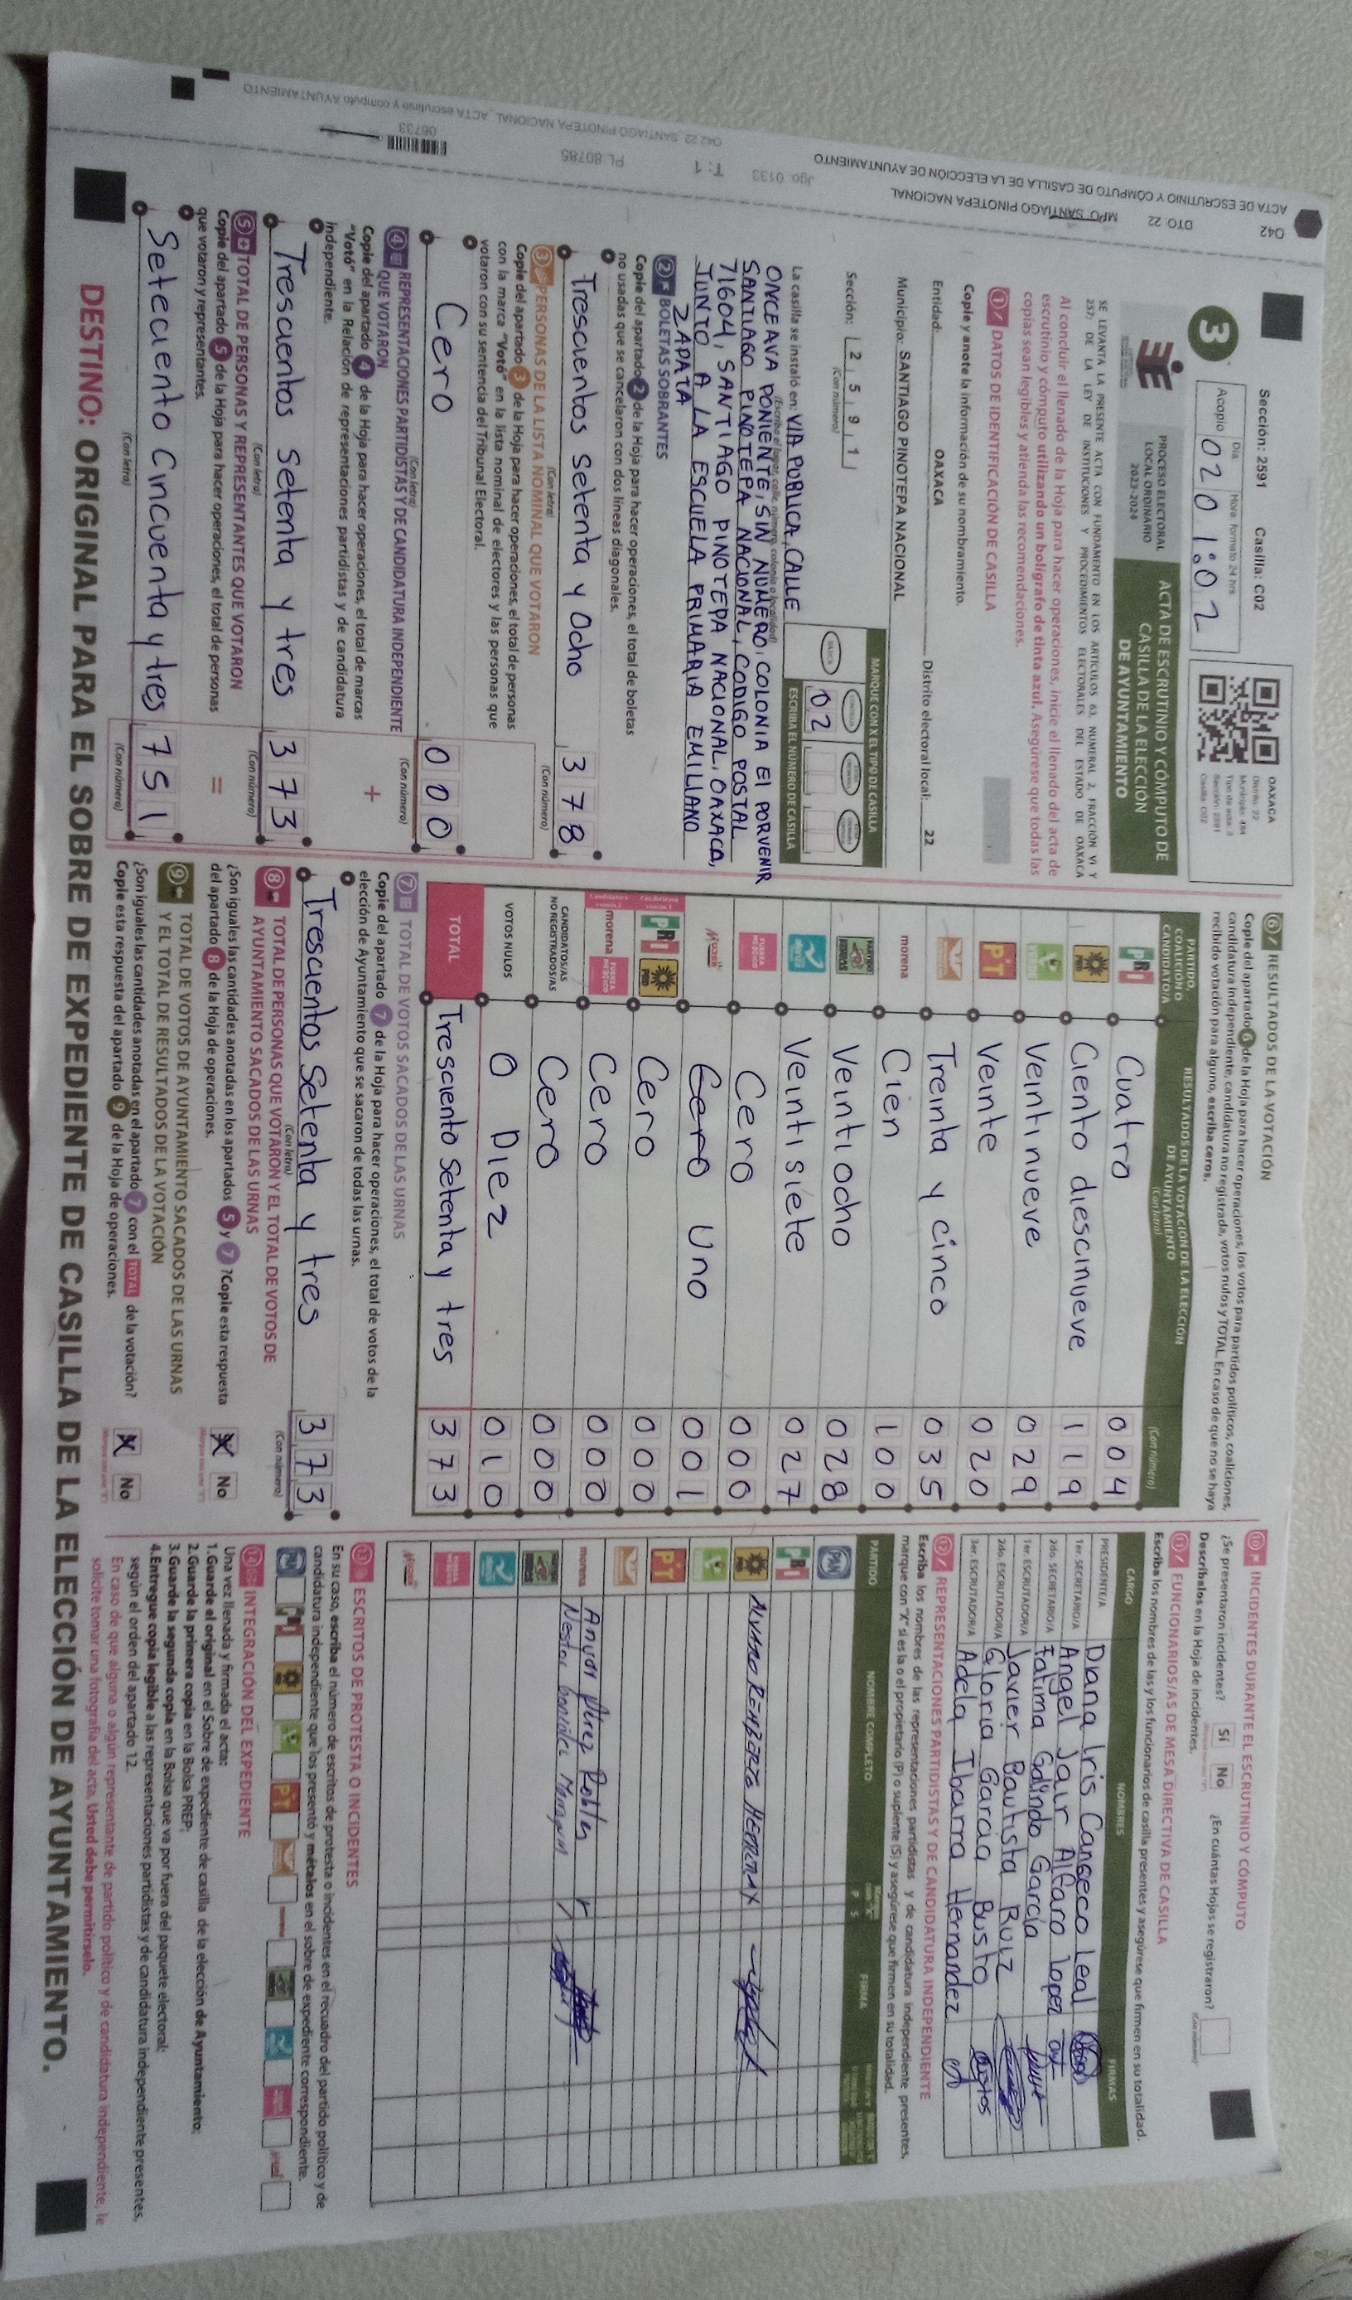 Sección: 2591 Casilla: C02
OAXACA
Día Hora: Formato 24 hrs
Acopio 02 01:02
3
PROCESO ELECTORAL
LOCAL ORDINARIO
2023-2024
ACTA DE ESCRUTINIO Y CÓMPUTO DE
CASILLA DE LA ELECCIÓN
DE AYUNTAMIENTO
SE LEVANTA LA PRESENTE ACTA CON FUNDAMENTO EN LOS ARTÍCULOS 63, NUMERAL 2, FRACCIÓN VI Y
257; DE LA LEY DE INSTITUCIONES Y PROCEDIMIENTOS ELECTORALES DEL ESTADO DE OAXACA
Al concluir el llenado de la Hoja para hacer operaciones, inicie el llenado del acta de
escrutinio y cómputo utilizando un bolígrafo de tinta azul. Asegúrese que todas las
copias sean legibles y atienda las recomendaciones.
1 DATOS DE IDENTIFICACIÓN DE CASILLA
Copie y anote la información de su nombramiento.
Entidad: OAXACA Distrito electoral local: 22
Municipio: SANTIAGO PINOTEPA NACIONAL
Sección: 2591
(Con número)
MARQUE CON X EL TIPO DE CASILLA
ESCRIBA EL NÚMERO DE CASILLA
02
La casilla se instaló en: VIA PUBLICA, CALLE
ONCEAVA PONIENTE, SIN NUMERO, COLONIA El PORVENIR
SANTIAGO PINOTEPA NACIONAL, CODIGO POSTAL
71604, SANTIAGO PINOTEPA NACIONAL, OAXACA,
JUNTO A LA ESCUELA PRIMARIA EMILIANO
ZAPATA
2 BOLETAS SOBRANTES
Copie del apartado 2 de la Hoja para hacer operaciones, el total de boletas
no usadas que se cancelaron con dos líneas diagonales.
Trescientos Setenta y Ocho 378
(Con letra) (Con número)
3 PERSONAS DE LA LISTA NOMINAL QUE VOTARON
Copie del apartado 3 de la Hoja para hacer operaciones, el total de personas
con la marca "Votó" en la lista nominal de electores y las personas que
votaron con su sentencia del Tribunal Electoral.
Cero 000
(Con letra) (Con número)
4 REPRESENTACIONES PARTIDISTAS Y DE CANDIDATURA INDEPENDIENTE
QUE VOTARON
+
Copie del apartado 4 de la Hoja para hacer operaciones, el total de marcas
"Votó" en la Relación de representaciones partidistas y de candidatura
independiente.
Trescientos setenta y tres 373
(Con letra) (Con número)
5 TOTAL DE PERSONAS Y REPRESENTANTES QUE VOTARON
=
Copie del apartado 5 de la Hoja para hacer operaciones, el total de personas
que votaron y representantes.
Seteciento Cincuenta y tres 751
(Con letra) (Con número)
6 RESULTADOS DE LA VOTACIÓN
Copie del apartado 6 de la Hoja para hacer operaciones, los votos para partidos políticos, coaliciones,
candidatura independiente, candidatura no registrada, votos nulos y TOTAL. En caso de que no se haya
recibido votación para alguno, escriba ceros.
PARTIDO, COALICIÓN O CANDIDATO/A
RESULTADOS DE LA VOTACIÓN DE LA ELECCIÓN DE AYUNTAMIENTO
(Con letra) (Con número)
PRI Cuatro 004
PRD Ciento diescinueve 119
Veintinueve 029
PT Veinte 020
Treinta y cinco 035
morena Cien 100
Veintiocho 028
Veintisiete 027
FUERZA MÉXICO Cero 000
Mujer Cero Uno 001
PRI PRD Cero 000
morena FUERZA MÉXICO Cero 000
CANDIDATOS/AS NO REGISTRADOS/AS Cero 000
VOTOS NULOS 0 Diez 010
TOTAL Tresciento Setenta y tres 373
7 TOTAL DE VOTOS SACADOS DE LAS URNAS
Copie del apartado 7 de la Hoja para hacer operaciones, el total de votos de la
elección de Ayuntamiento que se sacaron de todas las urnas.
Trescientos Setenta y tres 373
(Con letra) (Con número)
8 TOTAL DE PERSONAS QUE VOTARON Y EL TOTAL DE VOTOS DE
AYUNTAMIENTO SACADOS DE LAS URNAS
¿Son iguales las cantidades anotadas en los apartados 5 y 7? Copie esta respuesta
del apartado 8 de la Hoja de operaciones.
X No
9 TOTAL DE VOTOS DE AYUNTAMIENTO SACADOS DE LAS URNAS
Y EL TOTAL DE RESULTADOS DE LA VOTACIÓN
¿Son iguales las cantidades anotadas en el apartado 7 con el TOTAL de la votación?
Copie esta respuesta del apartado 9 de la Hoja de operaciones.
X No
10 INCIDENTES DURANTE EL ESCRUTINIO Y CÓMPUTO
¿Se presentaron incidentes? Sí No ¿En cuántas Hojas se registraron?
Descríbalos en la Hoja de incidentes.
11 FUNCIONARIOS/AS DE MESA DIRECTIVA DE CASILLA
Escriba los nombres de las y los funcionarios de casilla presentes y asegúrese que firmen en su totalidad.
CARGO NOMBRES FIRMAS
PRESIDENTE/A Diana Iris Canseco Leal
1er. SECRETARIO/A Angel Jair Alfaro Lopez
2do. SECRETARIO/A Fatima Galindo García
1er. ESCRUTADOR/A Javier Bautista Ruiz
2do. ESCRUTADOR/A Gloria Garcia Busto
3er. ESCRUTADOR/A Adela Ibarra Hernandez
12 REPRESENTACIONES PARTIDISTAS Y DE CANDIDATURA INDEPENDIENTE
Escriba los nombres de las representaciones partidistas y de candidatura independiente presentes,
marque con "X" si es la o el propietario (P) o suplente (S) y asegúrese que firmen en su totalidad.
PARTIDO NOMBRE COMPLETO P S FIRMA
PAN
PRI
PRD
PT
morena
13 ESCRITOS DE PROTESTA O INCIDENTES
En su caso, escriba el número de escritos de protesta o incidentes en el recuadro del partido político y de
candidatura independiente que los presentó y métalos en el sobre de expediente correspondiente.
14 INTEGRACIÓN DEL EXPEDIENTE
Una vez llenada y firmada el acta:
1.Guarde el original en el Sobre de expediente de casilla de la elección de Ayuntamiento;
2.Guarde la primera copia en la Bolsa PREP;
3.Guarde la segunda copia en la Bolsa que va por fuera del paquete electoral;
4.Entregue copia legible a las representaciones partidistas y de candidatura independiente presentes,
según el orden del apartado 12.
En caso de que alguna o algún representante de partido político y de candidatura independiente, le
solicite tomar una fotografía del acta, Usted debe permitírselo.
DESTINO: ORIGINAL PARA EL SOBRE DE EXPEDIENTE DE CASILLA DE LA ELECCIÓN DE AYUNTAMIENTO.
042 DTO 22 MPO SANTIAGO PINOTEPA NACIONAL
ACTA DE ESCRUTINIO Y CÓMPUTO DE CASILLA DE LA ELECCIÓN DE AYUNTAMIENTO
Jgo. 0133 T: 1 PL 80785
06733